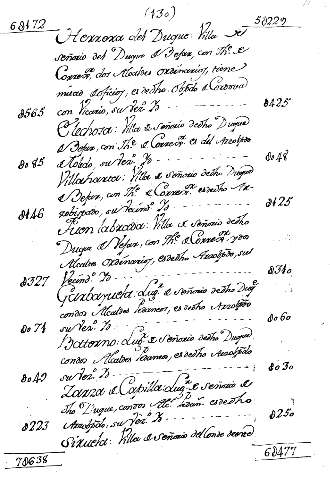 (130)
68172 50229
Herrera del Duque: Villa de
señorio del Duque de Befar, con The. de
Corregor. dos Alcaldes ordinarios, tiene
mitad de oficios, es de dho Obpdo de Cordova
8565 con Vicario, su Vezo. Yo 8425
Elechosa: Villa de Señorio de dho Duque
de Befar, con The. de Corregor. es del Arzobpdo
8085 de Toledo, su Vezo. Yo 8048
Villaharta: Villa de señorio de dho Duque
de Befar, con The. de Corregor. es de dho Ar-
8146 zobispado, su Vecindo. Yo 8125
Fuen labrada: Villa de Señorio de dho
Duque de Vefar, con The. de Corregor. y dos
Alcaldes ordinarios, es de dho Arzobpdo, su
8327 Vecindo. Yo 8340
Garbayuela: Lugr. de Señorio de dho Duqe.
con dos Alcaldes Pedaneos, es de dho Arzobpdo
8074 su Vezo. Yo 8060
Batorno: Lugr. de Señorio de dho Duque
con dos Alcaldes Pedaneos, es de dho Arzobpdo
8049 su Vezo. Yo 8030
Zarza de Capilla: Lugr. de Señorio de
dho Duque, con dos Alcs. Pedan. es de dho
8223 Arzobpdo, su Vezo. Yo 8250
Siruela: Villa de Señorio del Conde de
78638 68477